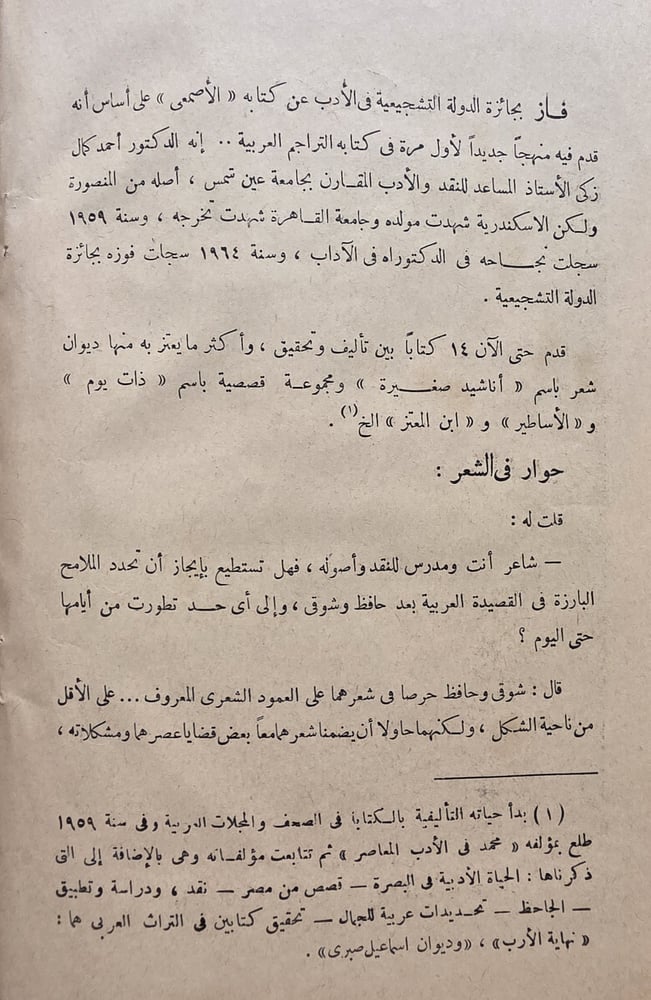 فاز بجائزة الدولة التشجيعية فى الأدب عن كتابه « الأصمعى » على أساس أنه
قدم فيه منهجاً جديداً لأول مرة فى كتابه التراجم العربية .. إنه الدكتور أحمد كمال
زكى الأستاذ المساعد للنقد والأدب المقارن بجامعة عين شمس ، أصله من المنصورة
ولكن الاسكندرية شهدت مولده وجامعة القاهرة شهدت تخرجه ، وسنة ١٩٥٩
سجلت نجاحه فى الدكتوراه فى الآداب ، وسنة ١٩٦٤ سجات فوزه بجائزة
الدولة التشجيعية .
قدم حتى الآن ١٤ كتاباً بين تأليف وتحقيق ، وأكثر ما يعتز به منها ديوان
شعر باسم « أناشيد صغيرة » ومجموعة قصصية باسم « ذات يوم »
و « الأساطير » و « ابن المعتز » الخ(١) .
حوار فى الشعر :
قلت له :
— شاعر أنت ومدرس للنقد وأصوله ، فهل تستطيع بإيجاز أن تحدد الملامح
البارزة فى القصيدة العربية بعد حافظ وشوقى ، وإلى أى حد تطورت من أيامها
حتى اليوم ؟
قال : شوقى وحافظ حرصا فى شعرهما على العمود الشعرى المعروف ... على الأقل
من ناحية الشكل ، ولكنهما حاولا أن يضمنا شعرهما معاً بعض قضايا عصرهما ومشكلاته ،
( ١ ) بدأ حياته التأليفية بالكتابة فى الصحف والمجلات العربية وفى سنة ١٩٥٩
طلع بمؤلفه « محمد فى الأدب المعاصر » ثم تتابعت مؤلفاته وهى بالإضافة إلى التى
ذكرناها : الحياة الأدبية فى البصرة — قصص من مصر — نقد ، ودراسة وتطبيق
— الجاحظ — تحديدات عربية للجمال — تحقيق كتابين فى التراث العربى هما :
« نهاية الأرب » ، «وديوان اسماعيل صبرى» .